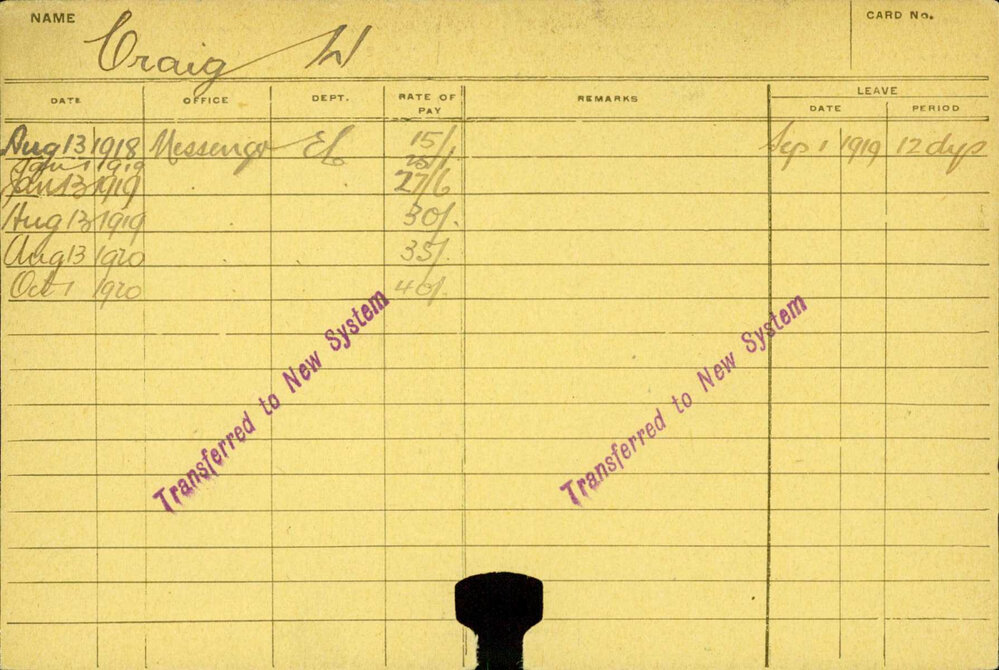 NAME Craig W CARD No.
DATE OFFICE DEPT. RATE OF PAY REMARKS LEAVE
DATE PERIOD
Aug 13 1918 Messenger 15/ Sep 1 1919 12 dys
Jan 1 1919
Jan 13 1919 27/6
Aug 13 1919 30/.
Aug 13 1920 35/.
Oct 1 1920 40/.
Transferred to New System
Transferred to New System